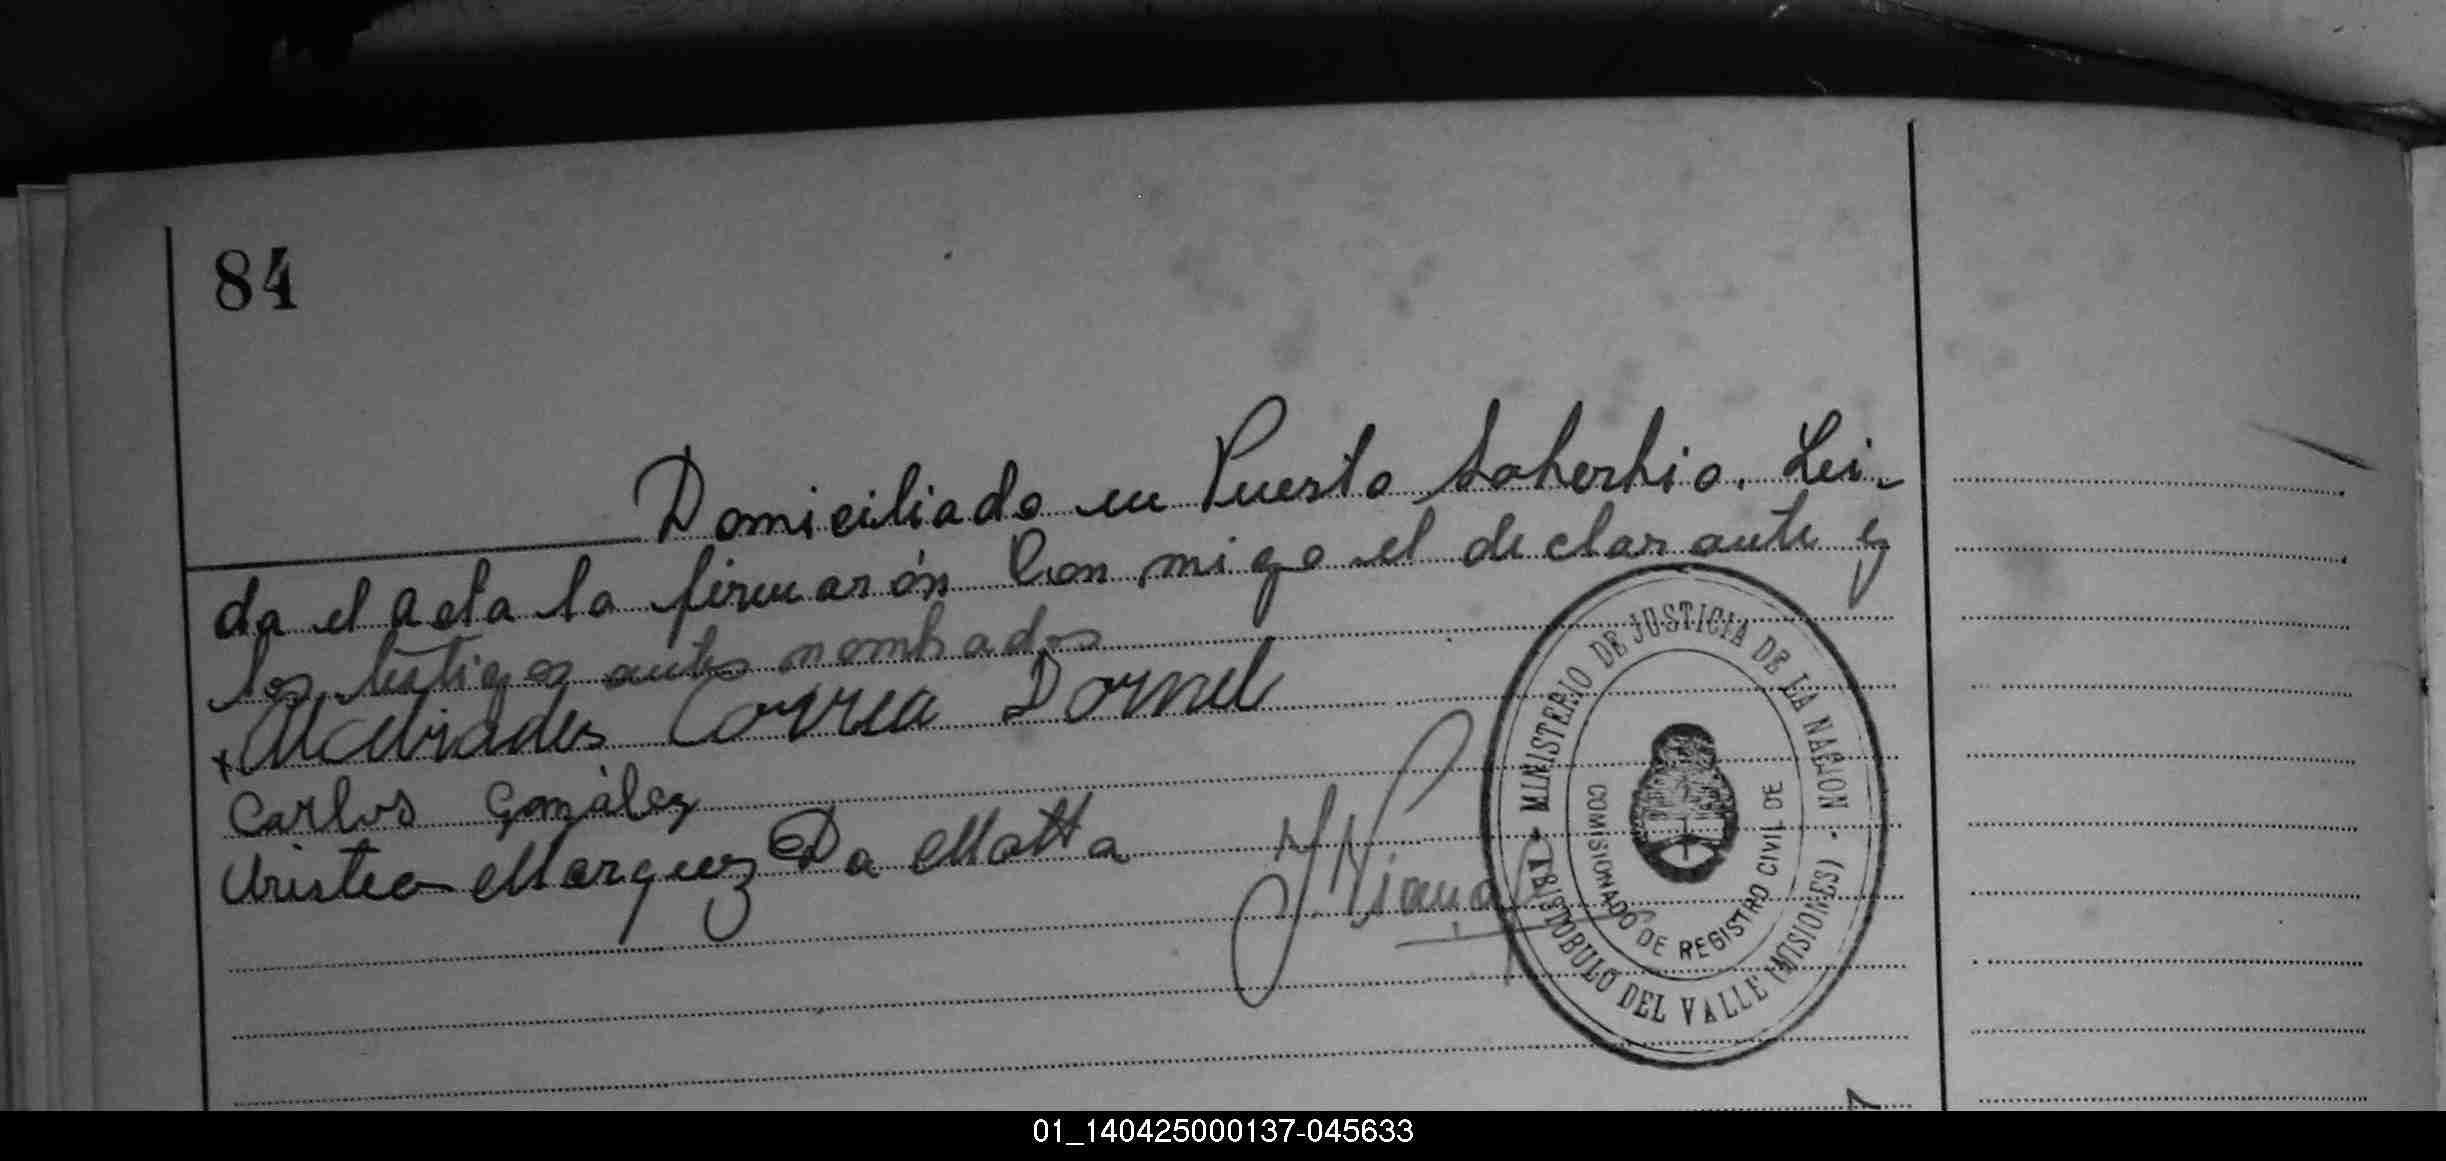 84
Domiciliado en Puerto Soberbio. Lei-
da el Acta la firmarón Con migo el declarante y
los testigos antes nombados
Alcebiades Correa Dornel
Carlos Gonzàlez
Marquez Da Motta
MINISTERIO DE JUSTICIA DE LA NACION
COMISIONADO DE REGISTRO CIVIL DE
ARISTOBULO DEL VALLE (MISIONES)
01_140425000137-045633